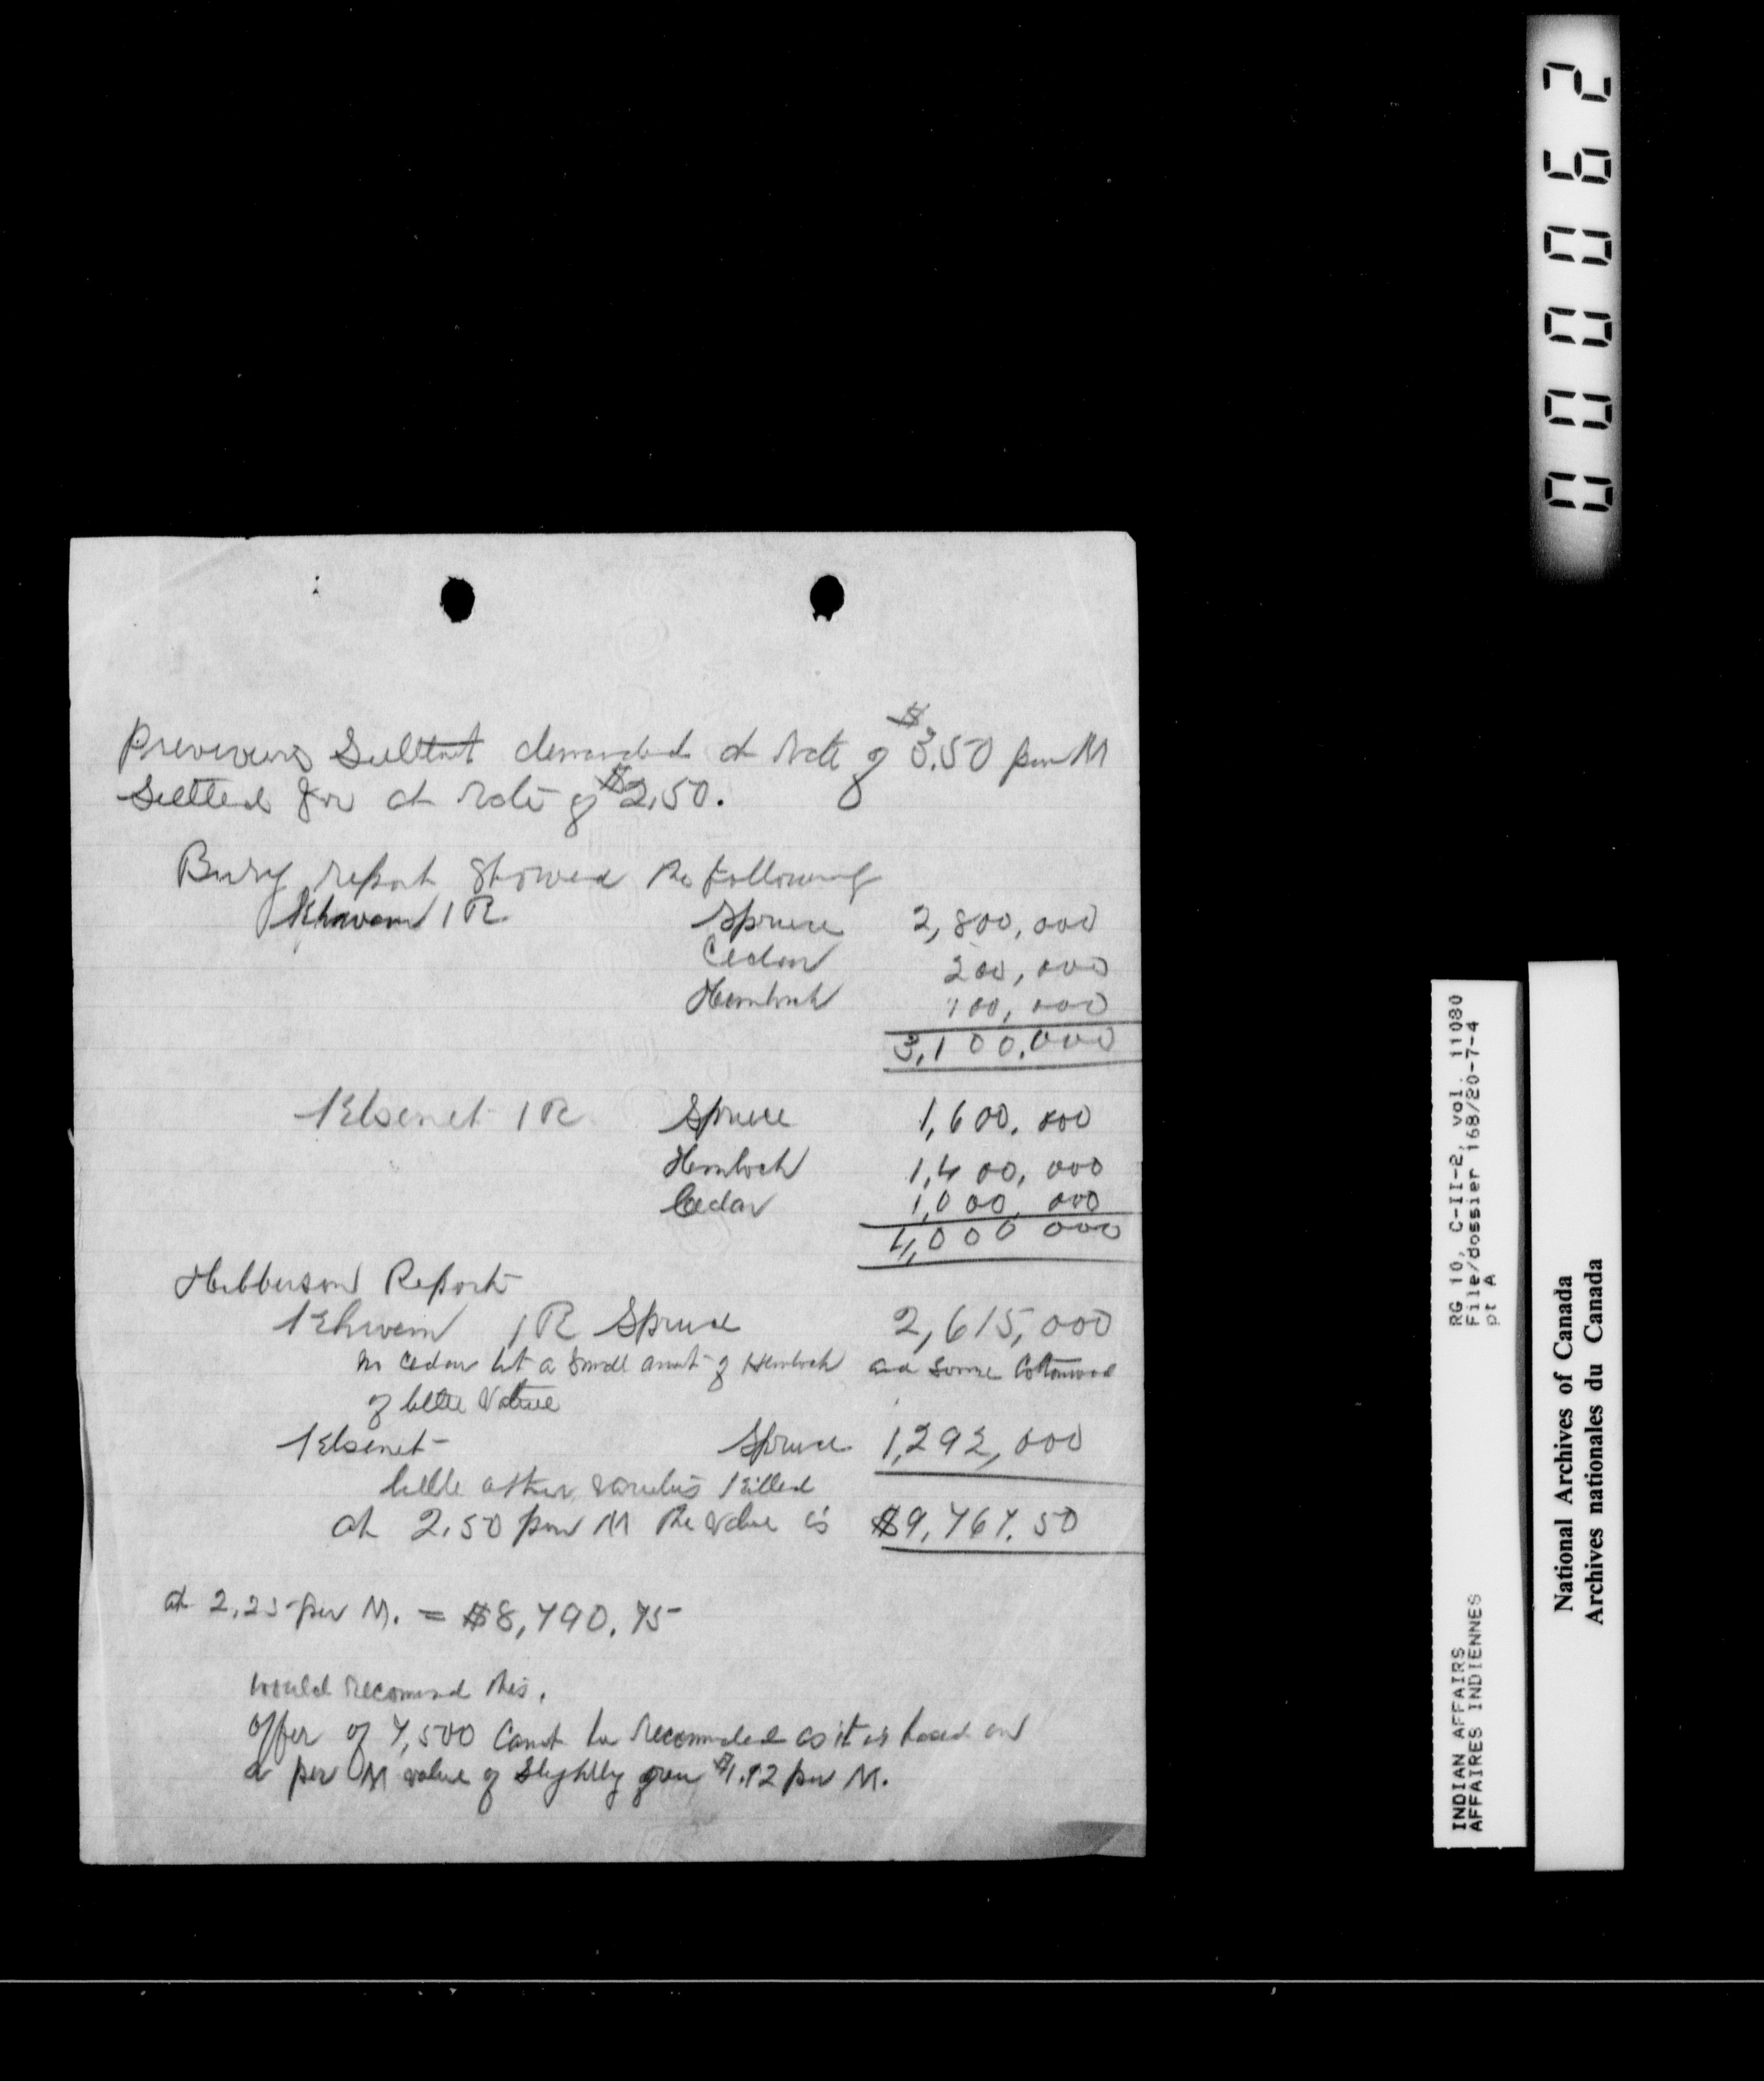 Previous Settlmt demanded at rate of $3.50 per M
Settled for at rate of $2.50.
Bury report showed the following
Khwam I R Spruce 2,800,000
Cedar 200,000
Hemlock 100,000
3,100,000
Kelsenet I R Spruce 1,600,000
Hemlock 1,400,000
Cedar 1,000,000
4,000 000
Hibberson Report
Khwam I R Spruce 2,615,000
no cedar but a small amnt of Hemlock and some Cottonwood
of little Value
Spruce 1,292,000
little other varieties killed
at 2.50 per M the value is $9,767.50
at 2.25 per M. = $8,790.75
would recomend this.
Offer of 7,500 cannot be recommended as it is based on
a per M value of slightly $1.92 per M.
000062
RG 10, C-II-2, vol. 11080
File/dossier 168/20-7-4
pt A
INDIAN AFFAIRS
AFFAIRES INDIENNES
National Archives of Canada
Archives nationales du Canada